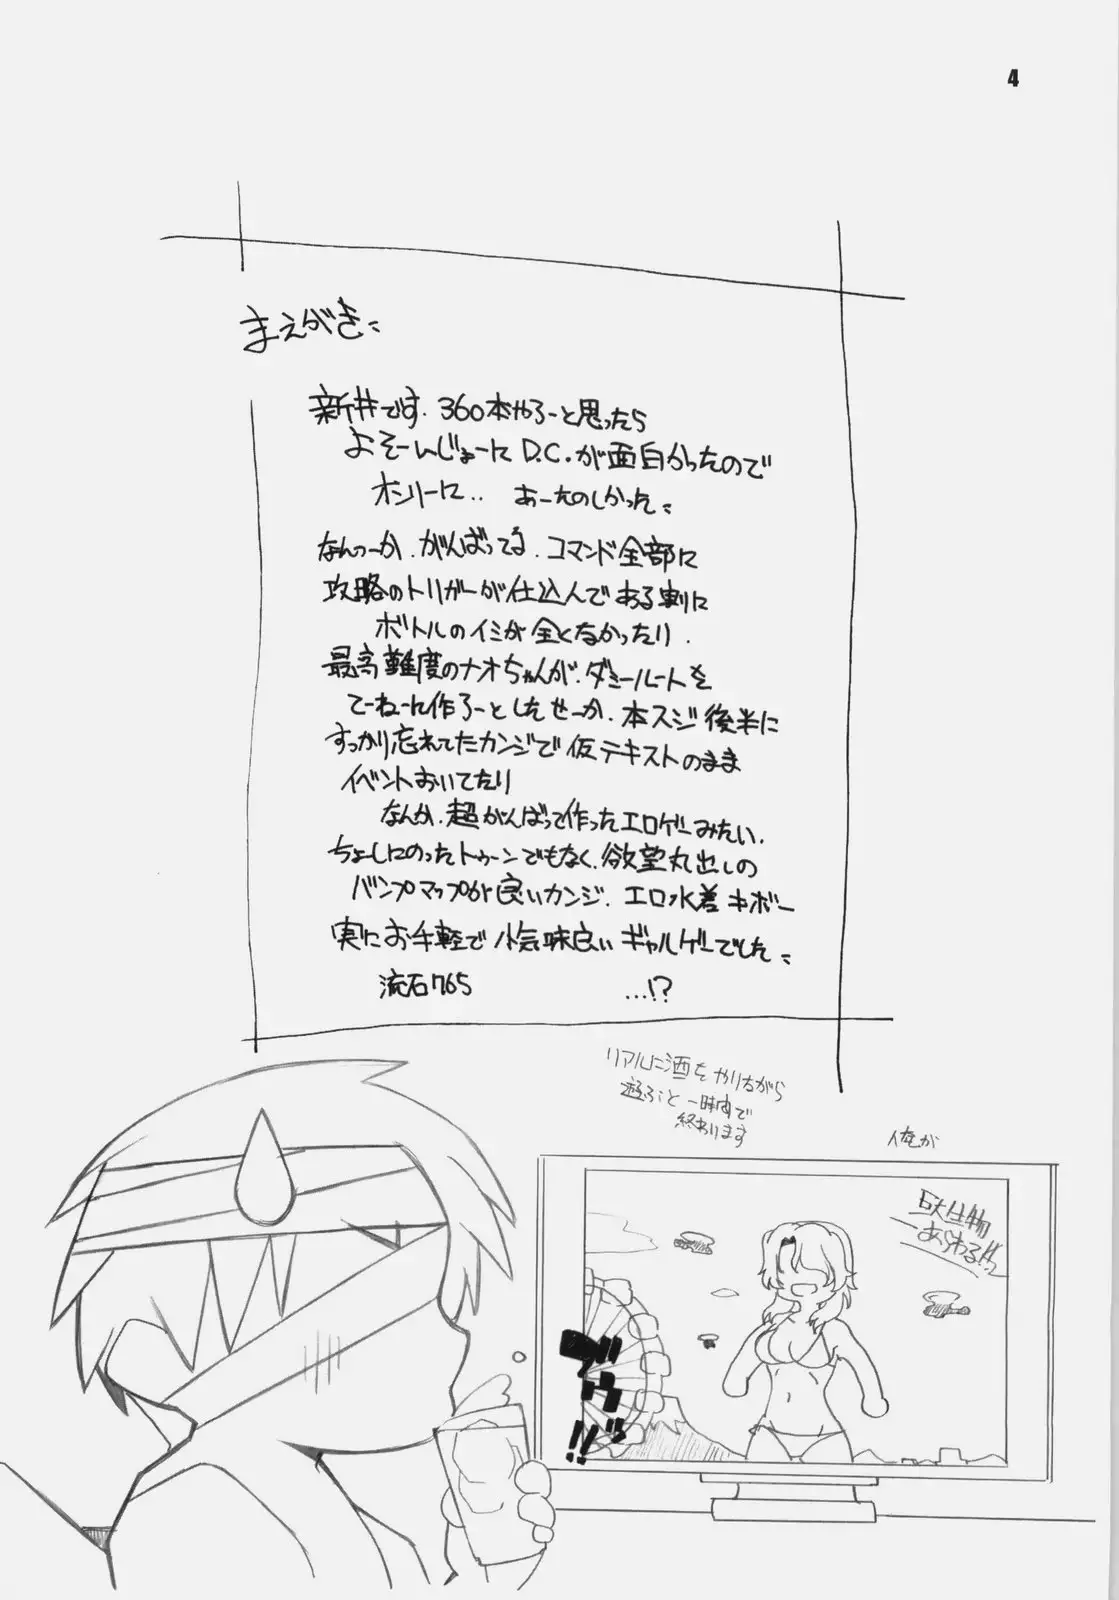 4
まえがき
新井です. 360本やろーと思ったら
よそーいじょーに D.C.が面白かったので
オンリーに.. あーたのしかった
なんつーか. がんばってる. コマンド全部に
攻略のトリガーが仕込んである割に
ボトルのイミが全くなかったり.
最高難度のナオちゃんが. ダミールートを
てーねーに作ろーとしたせーか. 本スジ後半に
すっかり忘れてたカンジで仮テキストのまま
イベントおいてたり
なんか. 超がんばって作ったエロゲーみたい.
ちょーしにのったトゥーンでもなく. 欲望丸出しの
バンプマップが良いカンジ. エロ水着キボー
実にお手軽で小気味良いギャルゲーでした
流石765 ...!?
リアルに酒をやりながら
遊ぶと一時間で
終わります
俺が
巨大仕物
あらわる!!